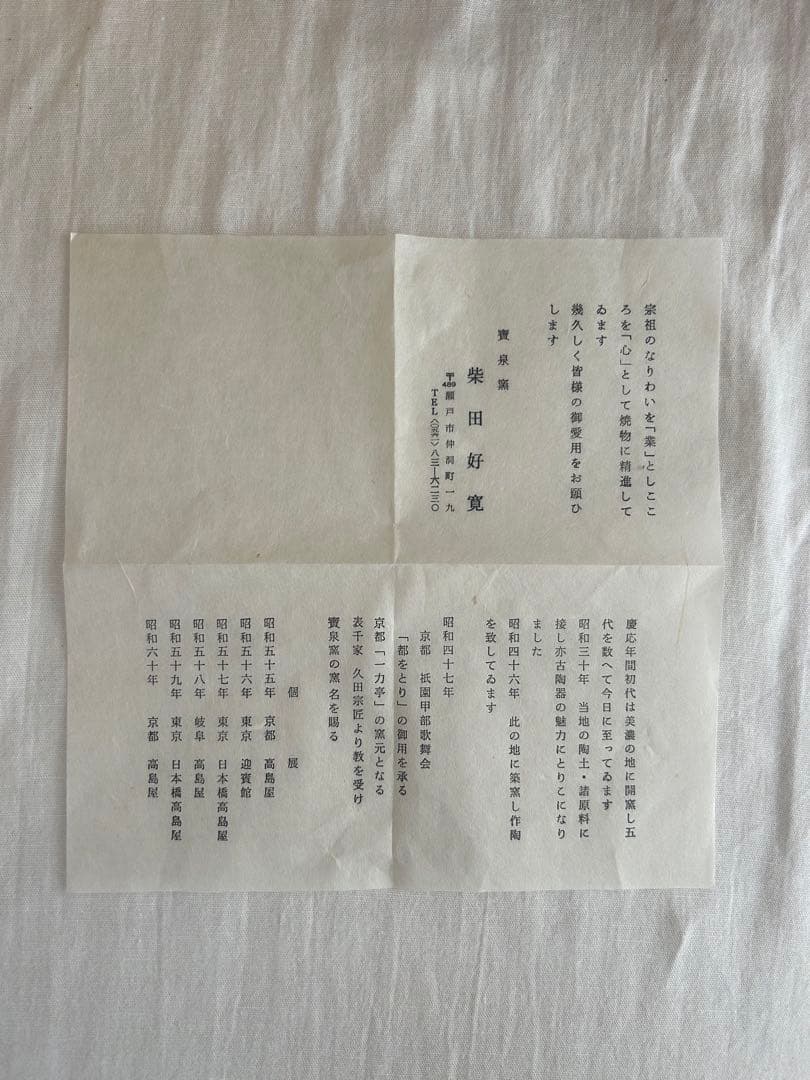 宗祖のなりわいを「業」としここ
ろを「心」として焼物に精進して
ゐます
幾久しく皆様の御愛用をお願ひ
します
寶泉窯
柴田好寛
〒489瀬戸市仲洞町一九
TEL〈〇五六一〉八三―六二三〇
慶応年間初代は美濃の地に開窯し五
代を数へて今日に至ってゐます
昭和三十年　当地の陶土・諸原料に
接し亦古陶器の魅力にとりこになり
ました
昭和四十六年　此の地に築窯し作陶
を致してゐます
昭和四十七年
京都　祇園甲部歌舞会
「都をとり」の御用を承る
京都「一力亭」の窯元となる
表千家　久田宗匠より教を受け
寶泉窯の窯名を賜る
個展
昭和五十五年　京都　高島屋
昭和五十六年　東京　迎賓館
昭和五十七年　東京　日本橋高島屋
昭和五十八年　岐阜　高島屋
昭和五十九年　東京　日本橋高島屋
昭和六十年　京都　高島屋